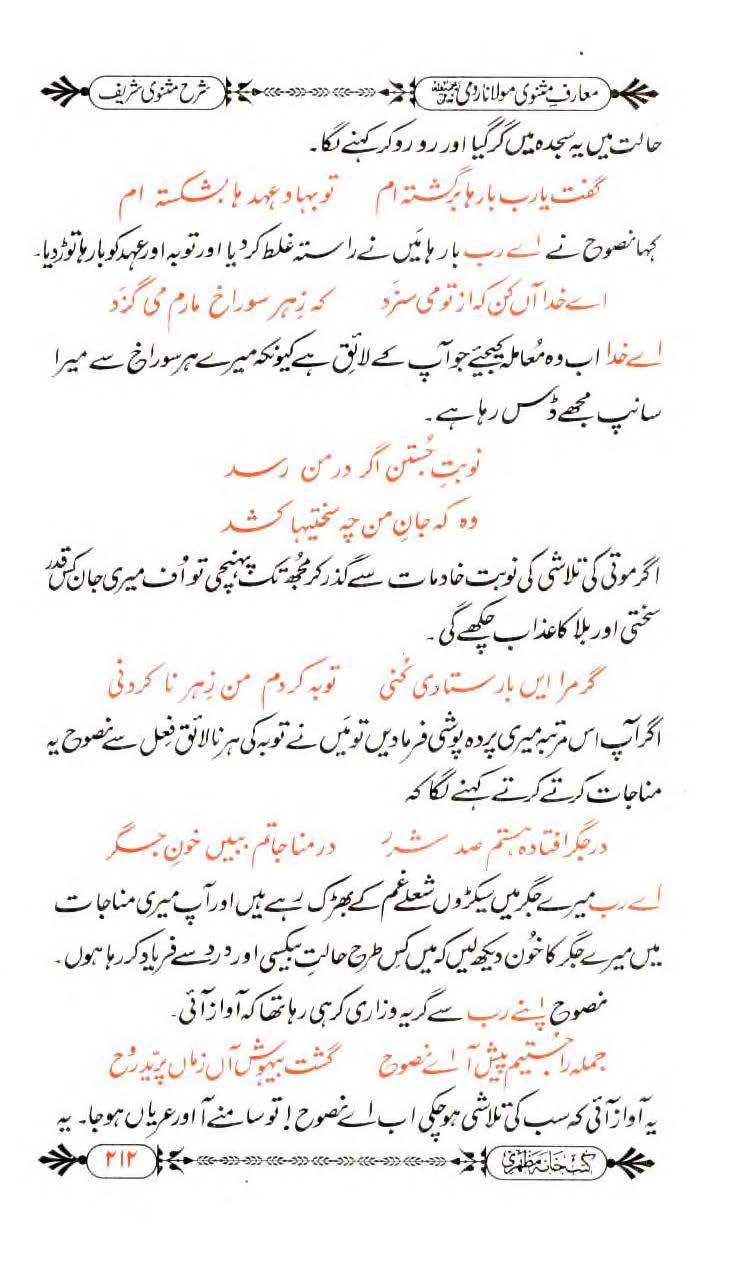 معارفِ مثنوی مولانا رومی رحمۃ اللہ علیہ
شرح مثنوی شریف
حالت میں یہ سجدہ میں گر گیا اور رو رو کر کہنے لگا۔
گفت یارب بارہا برگشتہ ام    توبہا و عہد ہا بشکستہ ام
کہا نصوح نے اے رب بارہا میں نے راستہ غلط کر دیا اور توبہ اور عہد کو بارہا توڑ دیا۔
اے خدا آں کن کہ از تو می سزد    کہ زِ ہر سوراخ مارم می گزد
اے خدا اب وہ معاملہ کیجیے جو آپ کے لائق ہے کیونکہ میرے ہر سوراخ سے میرا
سانپ مجھے ڈس رہا ہے۔
نوبتِ جُستن اگر در من رسد
وہ کہ جانِ من چہ سختیہا کشد
اگر موتی کی تلاشی کی نوبت خادمات سے گذر کر مجھ تک پہنچی تو اُف میری جان کس قدر
سختی اور بلا کا عذاب چکھے گی۔
گر مرا ایں بار ستاری کُنی    توبہ کردم من زِ ہر نا کردنی
اگر آپ اس مرتبہ میری پردہ پوشی فرما دیں تو میں نے توبہ کی ہر نالائق فعل سے نصوح یہ
مناجات کرتے کرتے کہنے لگا کہ
در جگر افتادہ ہستم صد شرر    در مناجاتم ببیں خونِ جگر
اے رب میرے جگر میں سیکڑوں شعلے غم کے بھڑک رہے ہیں اور آپ میری مناجات
میں میرے جگر کا خُون دیکھ لیں کہ میں کس طرح حالتِ بیکسی اور درد سے فریاد کر رہا ہوں۔
نصوح اپنے رب سے گریہ وزاری کر ہی رہا تھا کہ آواز آئی۔
جملہ را جُستیم پیش آ اے نصوح    گشت بیہوش آں زماں پرّید روح
یہ آواز آئی کہ سب کی تلاشی ہو چکی اب اے نصوح! تو سامنے آ اور عریاں ہو جا۔ یہ
کتب خانہ مظہری
۲۱۲